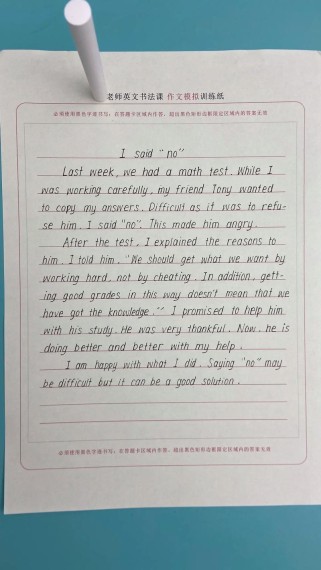 老师英文书法课 作文模拟训练纸
I said "no"
Last week, we had a math test. While I
was working carefully, my friend Tony wanted
to copy my answers. Difficult as it was to refu-
se him, I said "no". This made him angry.
After the test, I explained the reasons to
him. I told him, "We should get what we want by
working hard, not by cheating. In addition, gett-
ing good grades in this way doesn't mean that we
have got the knowledge." I promised to help him
with his study. He was very thankful. Now, he is
doing better and better with my help.
I am happy with what I did. Saying "no" may
be difficult but it can be a good solution.